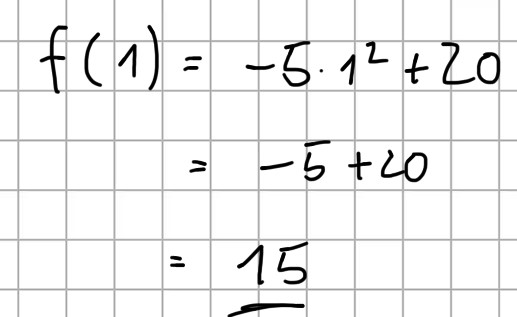 f(1) = -5·1²+20
= -5+20
= 15